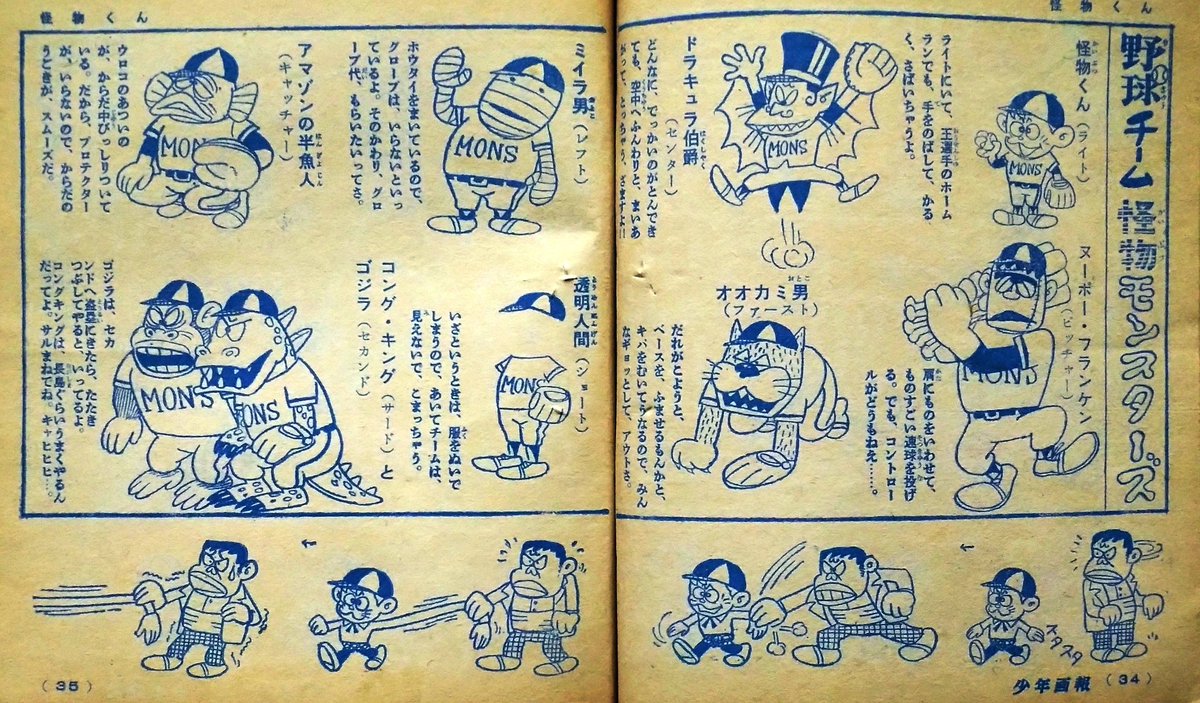 怪物くん
野球チーム怪物モンスターズ
怪物くん(ライト)
ライトにいて、王選手のホーム
ランでも、手をのばして、かる
く、さばいちゃうよ。
ヌーボー・フランケン
(ピッチャー)
肩にものをいわせて、
ものすごい速球を投げ
る。でも、コントロー
ルがどうもねえ……。
ドラキュラ伯爵
(センター)
どんなに、でっかいのがとんでき
ても、空中へふんわりと、まいあ
がって、とっちゃう、ざますよ!!
オオカミ男
(ファースト)
だれがこようと、
ベースを、ふませるもんかと、
キバをむいてうなるので、みん
なギョッとして、アウトさ。
MONS
MONS
MONS
スタスタ
少年画報
(34)
怪物くん
ミイラ男(レフト)
ホウタイをまいているので、
グローブは、いらないといっ
ているよ。そのかわり、グロ
ーブ代、もらいたいってさ。
アマゾンの半魚人
(キャッチャー)
ウロコのあついの
が、からだ中びっしりついて
いる。だから、プロテクター
が、いらないので、からだの
うごきが、スムーズだ。
透明人間(ショート)
いざというときは、服をぬいで
しまうので、あいてチームは、
見えないで、こまっちゃう。
コング・キング(サード)と
ゴジラ(セカンド)
ゴジラは、セカ
ンドへ盗塁にきたら、たたき
つぶしてやると、いってるよ。
コングキングは、長島ぐらいうまくやるん
だってよ。サルまねでね。キャヒヒ…。
MONS
MONS
MONS
MONS
ONS
(35)